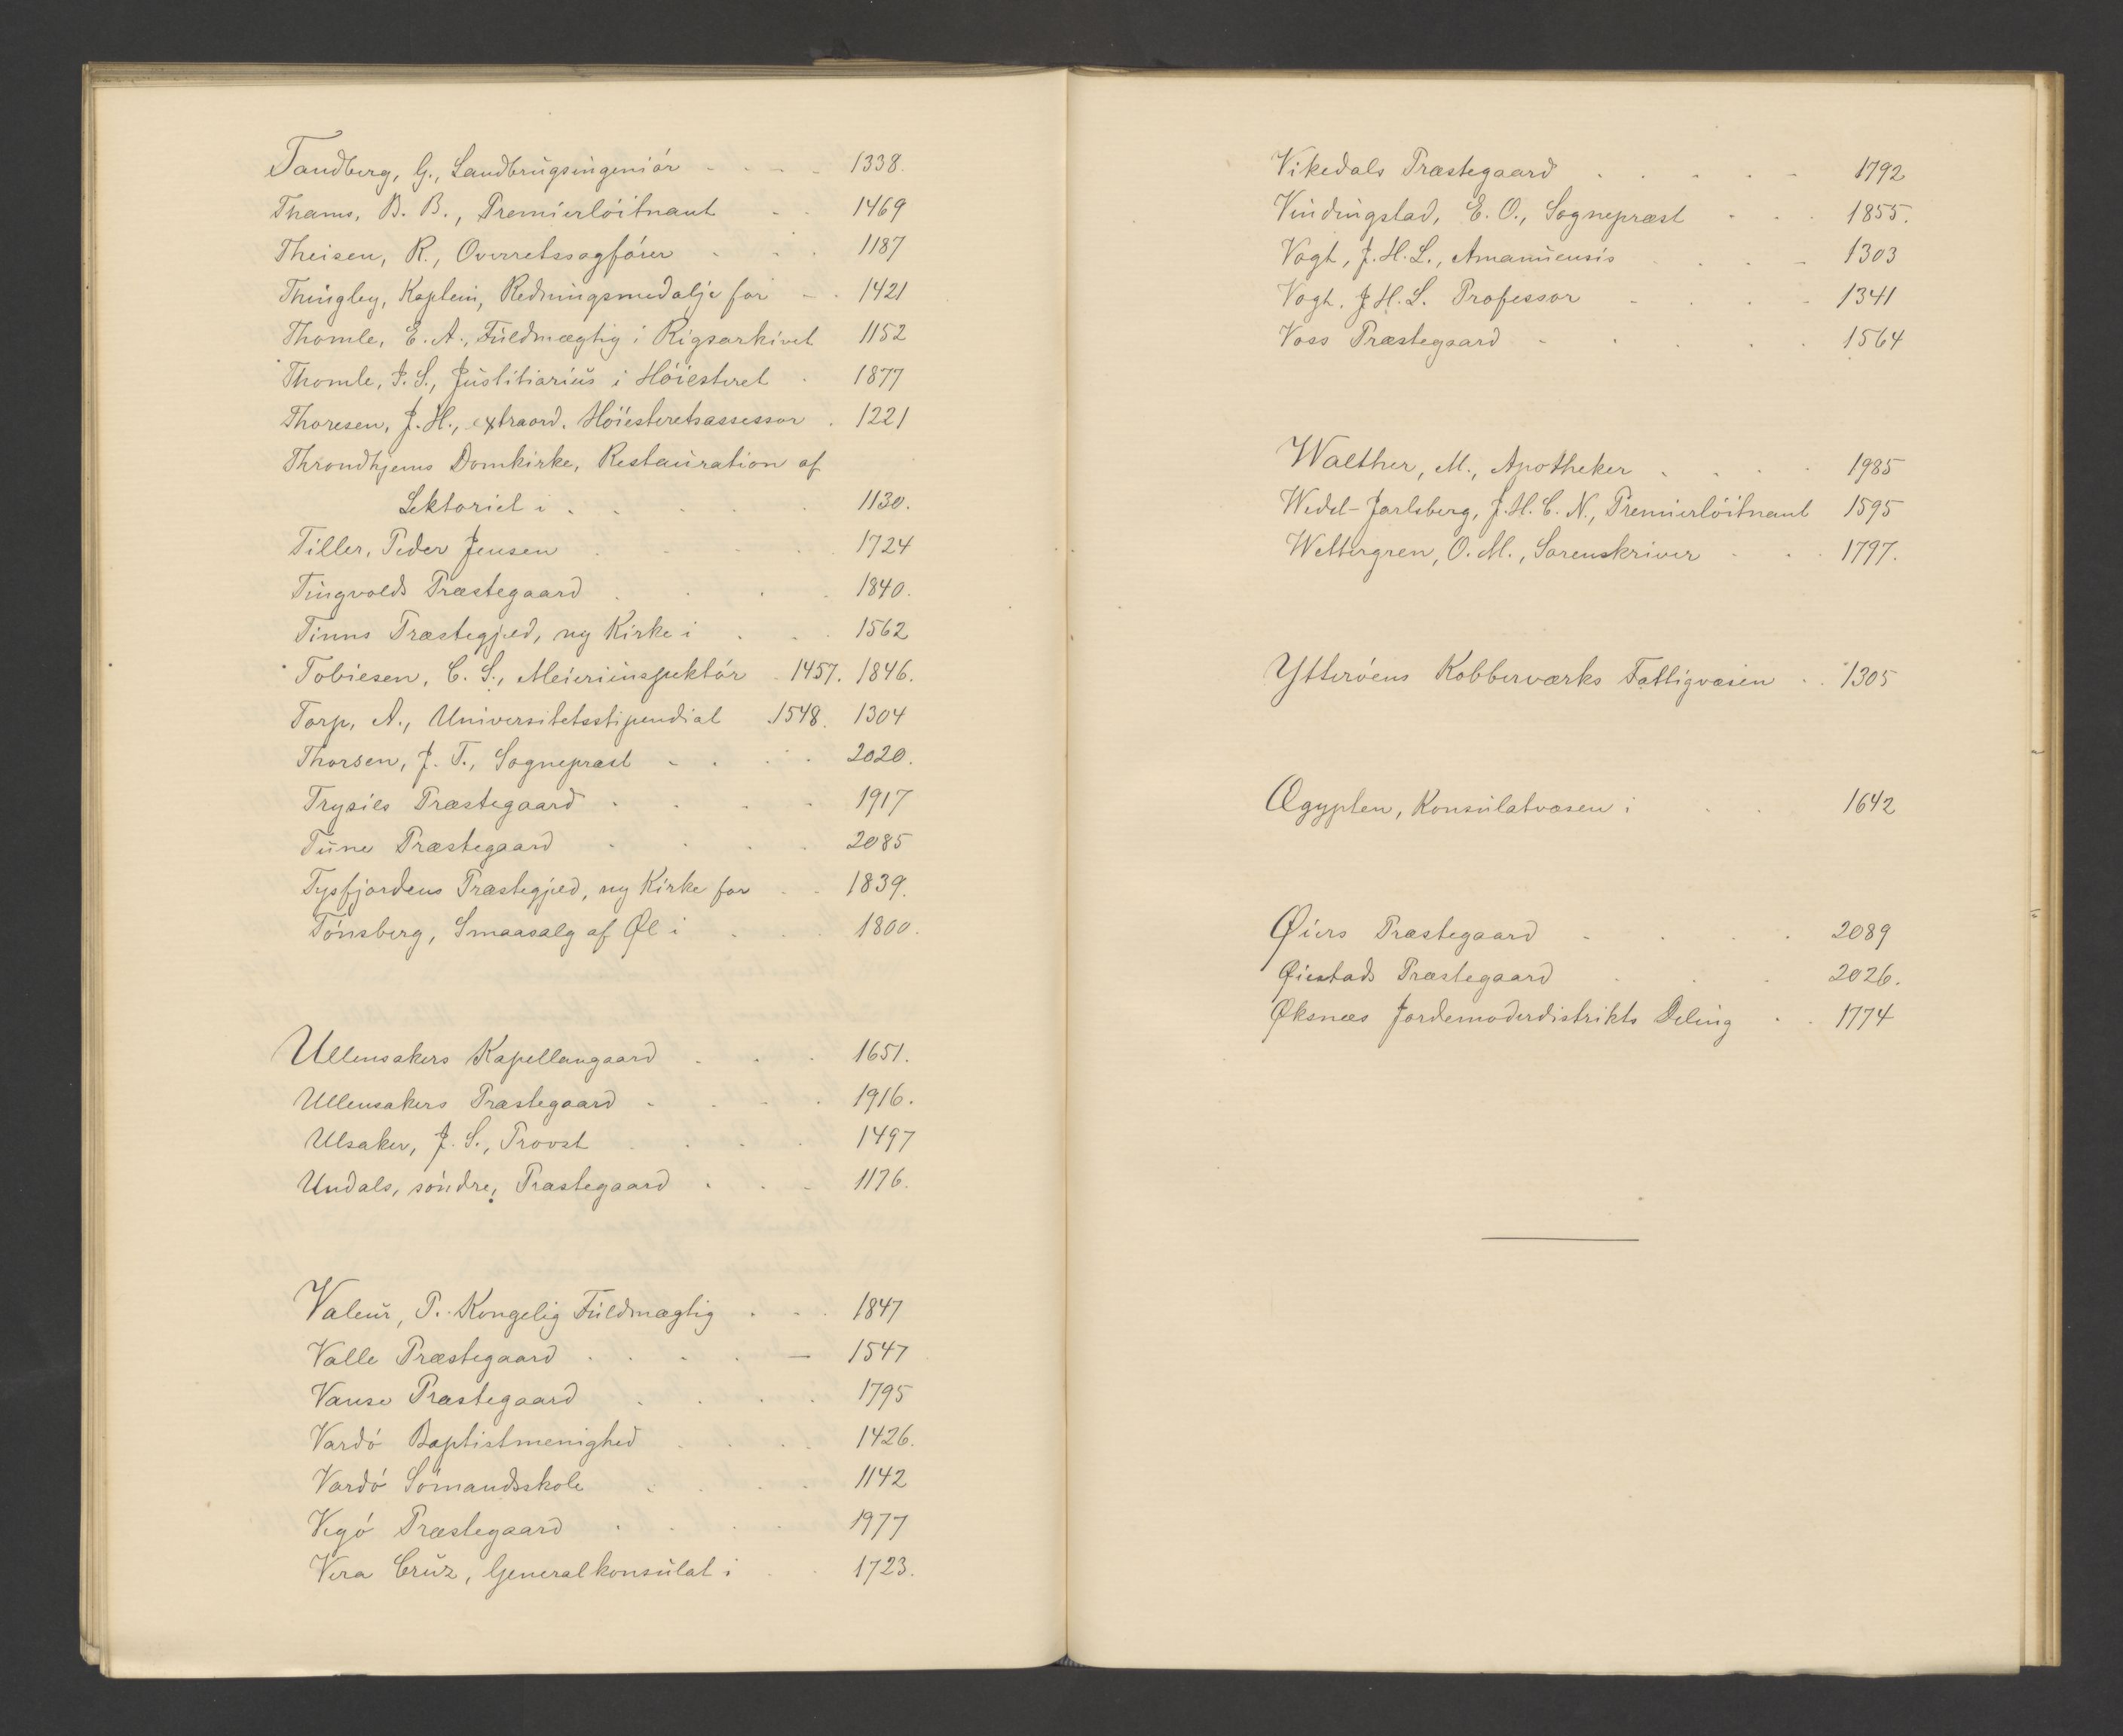 Tandberg, G., Landbrugsingeniör 1338.
Thams, B. B., Premierlöitnant 1469
Theisen, R., Overretssagförer 1187
Thingley, Kaptein, Redningsmedalje for 1421
Thomle, E. A., Fuldmægtig i Rigsarkivet 1152
Thomle, I. S., Justitiarius i Höiesteret 1877
Thoresen, J. H., extraord. Höiesteretsassessor 1221
Throndhjems Domkirke, Restauration af
Lektoriet i 1130.
Tiller, Peder Jensen 1724
Tingvolds Præstegaard 1840.
Tinns Præstegjeld, ny Kirke i 1562
Tobiesen, C. S., Meieriinspektör 1457. 1846.
Torp, A., Universitetsstipendiat 1548. 1304
Thorsen, J. T., Sogneprest 2020.
Trysils Præstegaard 1917
Tune Præstegaard 2085
Tysfjordens Præstegjeld, ny Kirke for 1839.
Tönsberg, Smaasalg af Øl i 1800.
Ullensakers Kapellangaard 1651.
Ullensakers Præstegaard 1916.
Ulsaker, J. S., Provst 1497
Undals, söndre, Præstegaard 1176.
Valeur, P. Kongelig Fuldmægtig 1847
Valle Præstegaard 1547
Vanse Præstegaard 1795
Vardö Baptistmenighed 1426.
Vardö Sömandsskole 1142
Vegö Præstegaard 1977
Vera Cruz, Generalkonsulat i 1723.
Vikedals Præstegaard 1792
Vindingstad, E. O., Sogneprest 1855.
Vogt, J. H. L., Amanuensis 1303
Vogt, J. H. L. Professor 1341
Voss Præstegaard 1564
Walther, M., Apotheker 1985
Wedel-Jarlsberg, J. H. C. N., Premierlöitnant 1595
Wettergren, O. M., Sorenskriver 1797.
Ytteröens Kobberværks Fattigvæsen 1305
Ægypten, Konsulatvæsen i 1642
Øiers Præstegaard 2089
Øiestads Præstegaard 2026.
Øksnes Jordemoderdistrikts Deling 1774